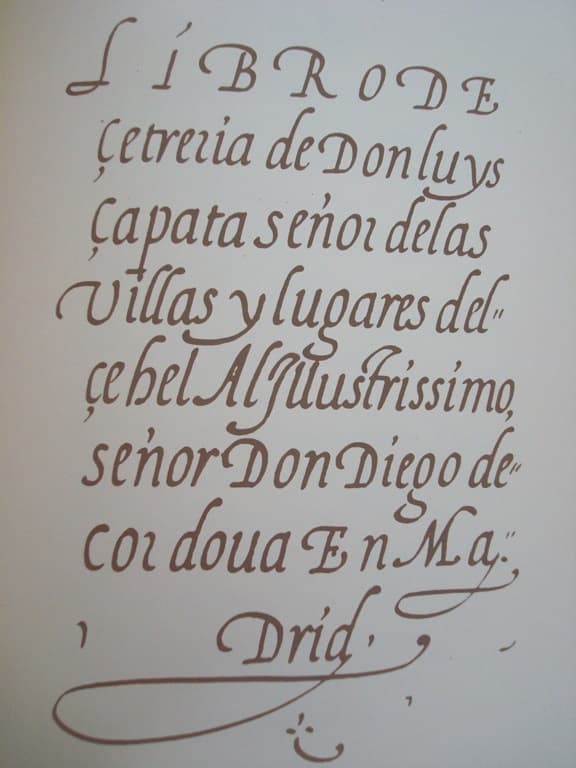 LIBRO DE
çetreria de Don luys
çapata señor de las
Villas y lugares del-
çehel Al Jllustrissimo,
señor Don Diego de-
cordoua En Ma-
Drid.